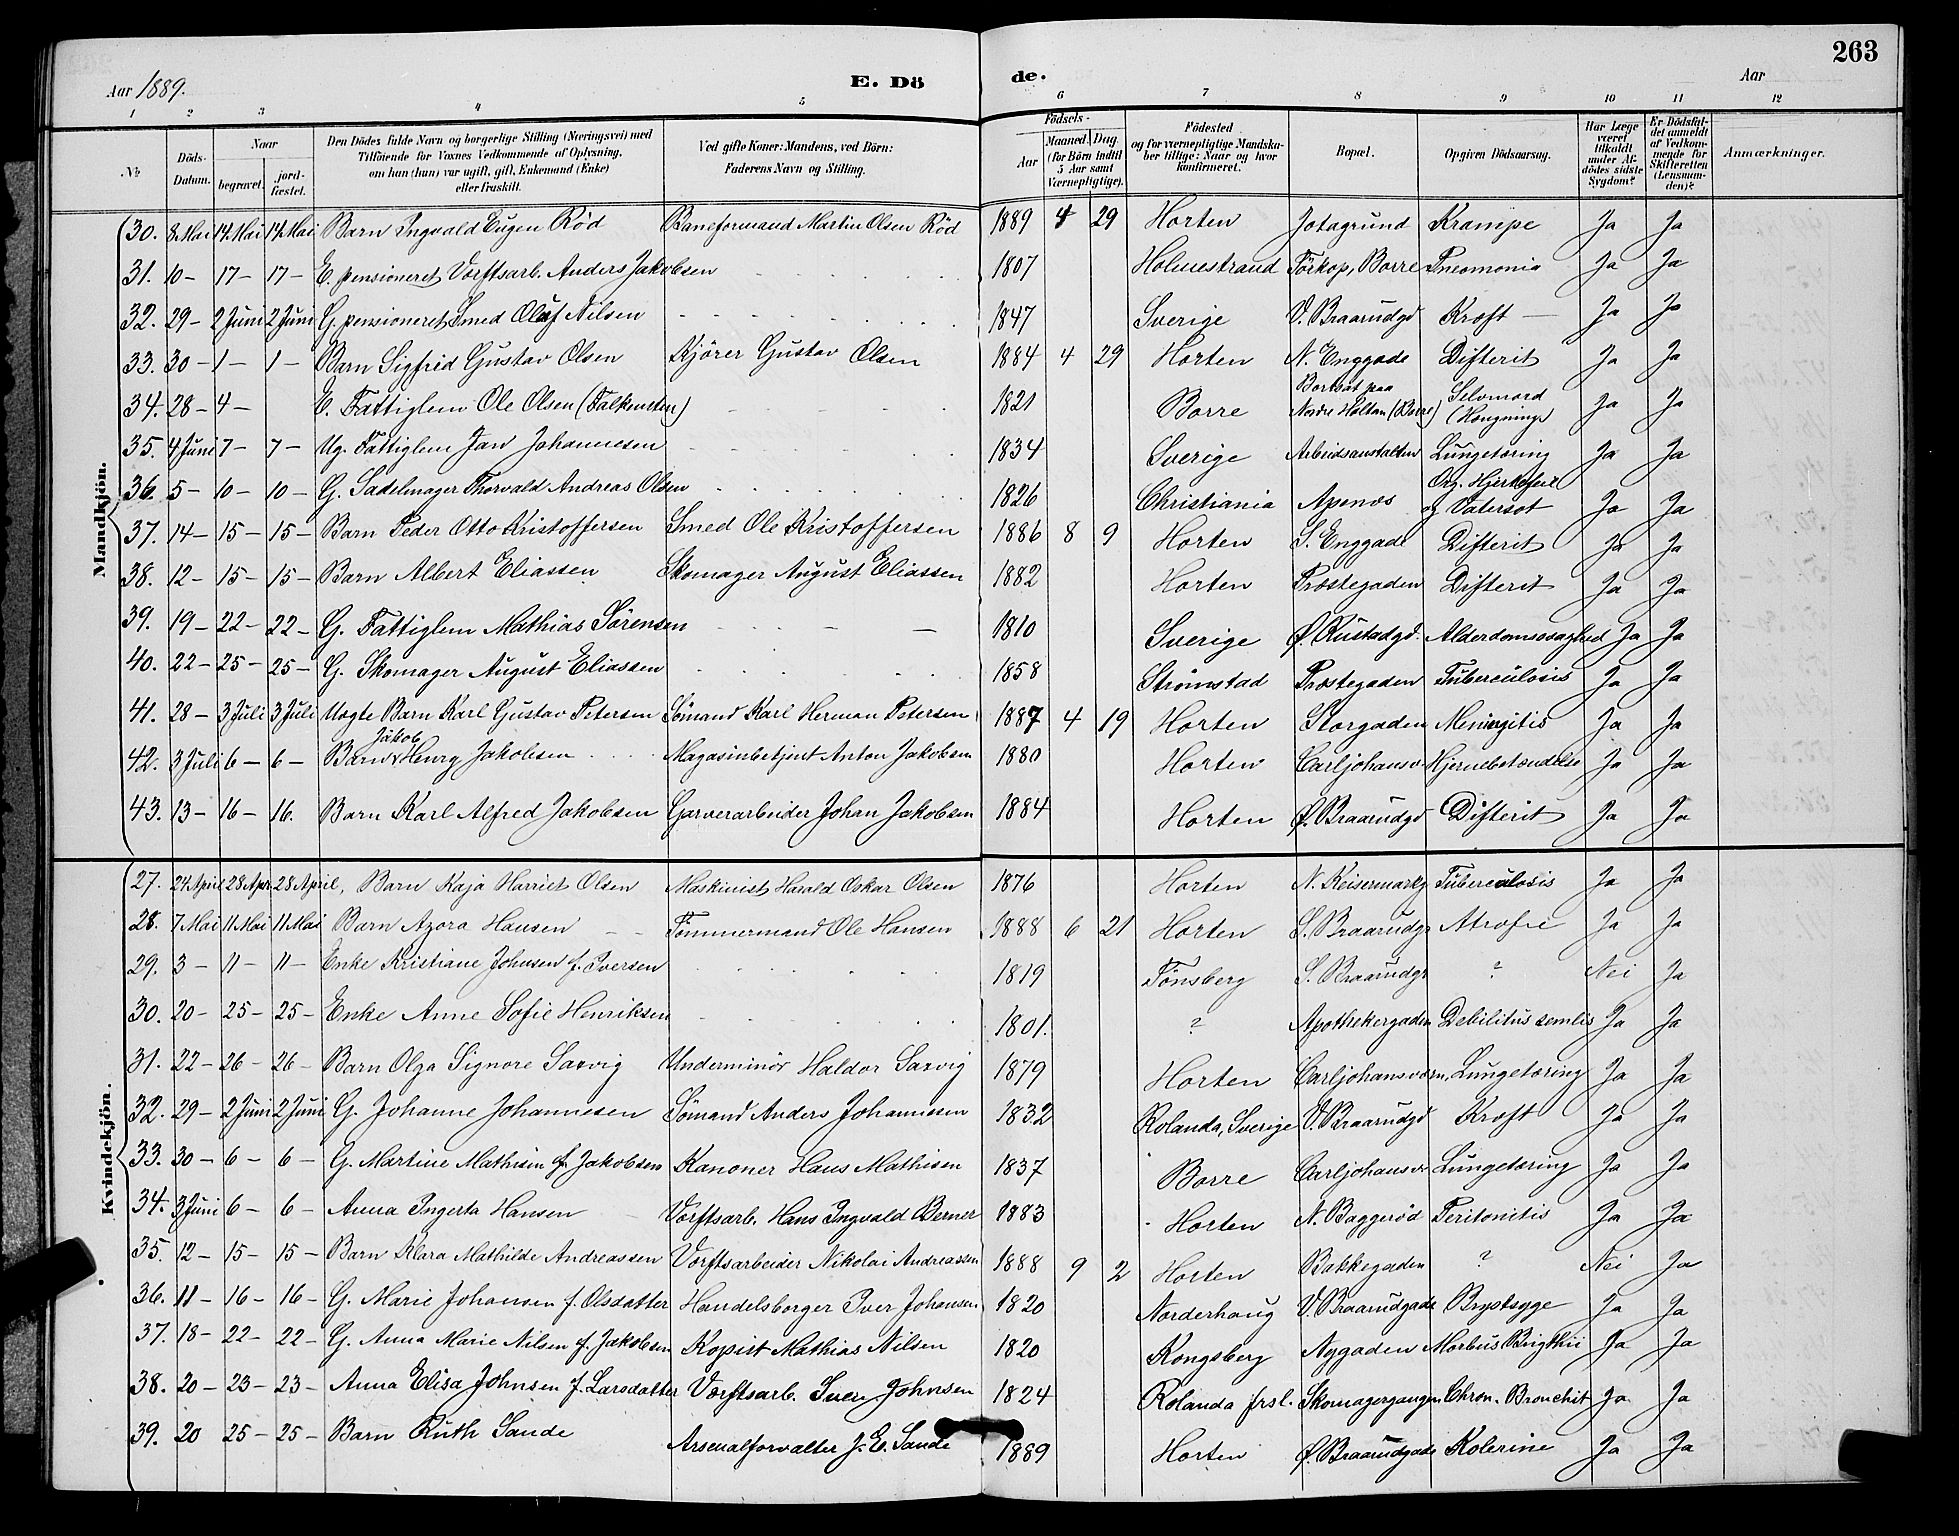 263
Aar 1889. E. Dö de. Aar
1 2 3 4 5 6 7 8 9 10 11 12
№ Döds-Datum. Naar begravet. jordfæstet. Den Dödes fulde Navn og borgerlige Stilling (Næringsvei) med Tilföiende for Voxnes Vedkommende af Oplysning, om han (hun) var ugift, gift, Enkemand (Enke) eller fraskilt. Ved gifte Koner: Mandens, ved Börn: Faderens Navn og Stilling. Födsels- Aar Maaned. Dag (for Börn indtil 5 Aar samt Værnepligtige). Födested og for værnepligtige Mandskaber tillige: Naar og hvor konfirmeret. Bopæl. Opgiven Dödsaarsag. Har Læge været tilkaldt under Afdödes sidste Sygdom? Er Dödsfaldet anmeldt af Vedkommende for Skifteretten (Lensmanden)? Anmærkninger.
Mandkjön.
30. 8 Mai 14 Mai 14 Mai Barn Ingvald Eugen Röd Baneformand Martin Olsen Röd 1889 4 29 Horten Jotagrund Krampe Ja Ja
31. 10 – 17 – 17 – E. pensioneret Værftsarb. Anders Jakobsen 1807 Holmestrand Förkop, Borre Pneomonia Ja Ja
32. 29 – 2 Juni 2 Juni G. pensioneret Smed Oluf Nilsen 1847 Sverige V. Braarudgd Kræft – Ja Ja
33. 30 – 1 – 1 – Barn Sigfrid Gustav Olsen Kjörer Gustav Olsen 1884 4 29 Horten N. Enggade Difterit Ja Ja
34. 28 – 4 – E. Fattiglem Ole Olsen (Falkensten) 1821 Borre Bortsat paa Nordre Holtan (Borre) Selvmord (Hængning) Ja Ja
35. 4 Juni 7 – 7 – Ug. Fattiglem Jan Johannesen 1834 Sverige Arbeidsanstalten Lungetæring Ja Ja
36. 5 – 10 – 10 – G. Sadelmager Thorvald Andreas Olsen 1826 Christiania Apenæs Org. Hjertefeil og Vatersot Ja Ja
37. 14 – 15 – 15 – Barn Peder Otto Kristoffersen Smed Ole Kristoffersen 1886 8 9 Horten S. Enggade Difterit Ja Ja
38. 12 – 15 – 15 – Barn Albert Eliassen Skomager August Eliassen 1882 Horten Præstegaden Difterit Ja Ja
39. 19 – 22 – 22 – G. Fattiglem Mathias Sörensen 1810 Sverige Ø. Rustadgd. Alderdomssvaghed Ja Ja
40. 22 – 25 – 25 – G. Skomager August Eliassen 1858 Strömstad Præstegaden Tuberculosis Ja Ja
41. 28 – 3 Juli 3 Juli Uægte Barn Karl Gustav Petersen Sömand Karl Herman Petersen 1887 4 19 Horten Storgaden Meningitis Ja Ja
42. 3 Juli 6 – 6 – Barn Jakob Henry Jakobsen Magasinbetjent Anton Jakobsen 1880 Horten Carljohansv. Hjernebetændelse Ja Ja
43. 13 – 16 – 16. Barn Karl Alfred Jakobsen Garverarbeider Johan Jakobsen 1884 Horten Ø. Braarudgd Difterit Ja Ja
Kvindekjön.
27. 24 April 28 Apr 28 April, Barn Kaja Harriet Olsen Maskinist Harald Oskar Olsen 1876 Horten N. Keisermarkg Tuberculosis Ja Ja
28. 7 Mai 11 Mai 11 Mai Barn Azora Hansen Tömmermand Ole Hansen 1888 6 21 Horten S. Braarudgr Atrofie Ja Ja
29. 3 – 11 – 11 – Enke Kristiane Johnsen f. Iversen 1819 Tönsberg S. Braarudgr ? Nei Ja
30. 20 – 25 – 25 – Enke Anne Sofie Henriksen 1801. ? Apothekergaden Debilitus senilis Ja Ja
31. 22 – 26 – 26 – Barn Olga Signore Saxvig Underminör Haldor Saxvig 1879 Horten Carljohansværn, Lungetæring Ja Ja
32. 29 – 2 Juni 2 Juni G. Johanne Johannesen Sömand Anders Johannesen 1832 Rolanda, Sverige V. Braarudgd Kræft Ja Ja
33. 30 – 6 – 6 – G. Martine Mathisen f. Jakobsen Kanoner Hans Mathisen 1837 Borre Carljohansv. Lungetæring Ja Ja
34. 3 Juni 6 – 6 – Anna Ingerta Hansen Værftsarb. Hans Ingvald Berner 1883 Horten N. Baggeröd Peritonitis Ja Ja
35. 12 – 15 – 15 – Barn Klara Mathilde Andreassen Værftsarbeider Nikolai Andreassen 1888 9 2 Horten Bakkegaden ? Nei Ja
36. 11 – 16 – 16 – G. Marie Johansen f. Olsdatter Handelsborger Iver Johansen 1820 Norderhaug V. Braarudgade Brystsyge Ja Ja
37. 18 – 22 – 22 – G. Anna Marie Nilsen f. Jakobsen Kopist Mathias Nilsen 1820 Kongsberg Nygaden Morbus Brigthii Ja Ja
38. 20 – 23 – 23 – Anna Elisa Johnsen f. Larsdatter Værftsarb. Johnsen 1824 Rolanda prsl. Skomagergangen Chron. Bronchit Ja Ja
39. 20 25 – 25 – Barn Ruth Sande Arsenalforvalter J. E. Sande 1889 Horten Ø. Braarudgade Kolerine Ja Ja